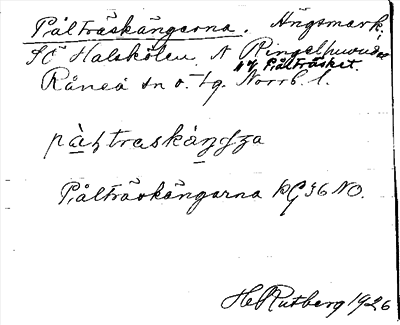 Pålträskängarna. Ängsmark,
SÖ Halskölen, N Ringelpundet
N Pålträsket.
Råneå sn o. tg. Norrb. l.
pàhtraskáŋʃʒa
Pålträskängarna KG 36 NO.
H. Rutberg 1926